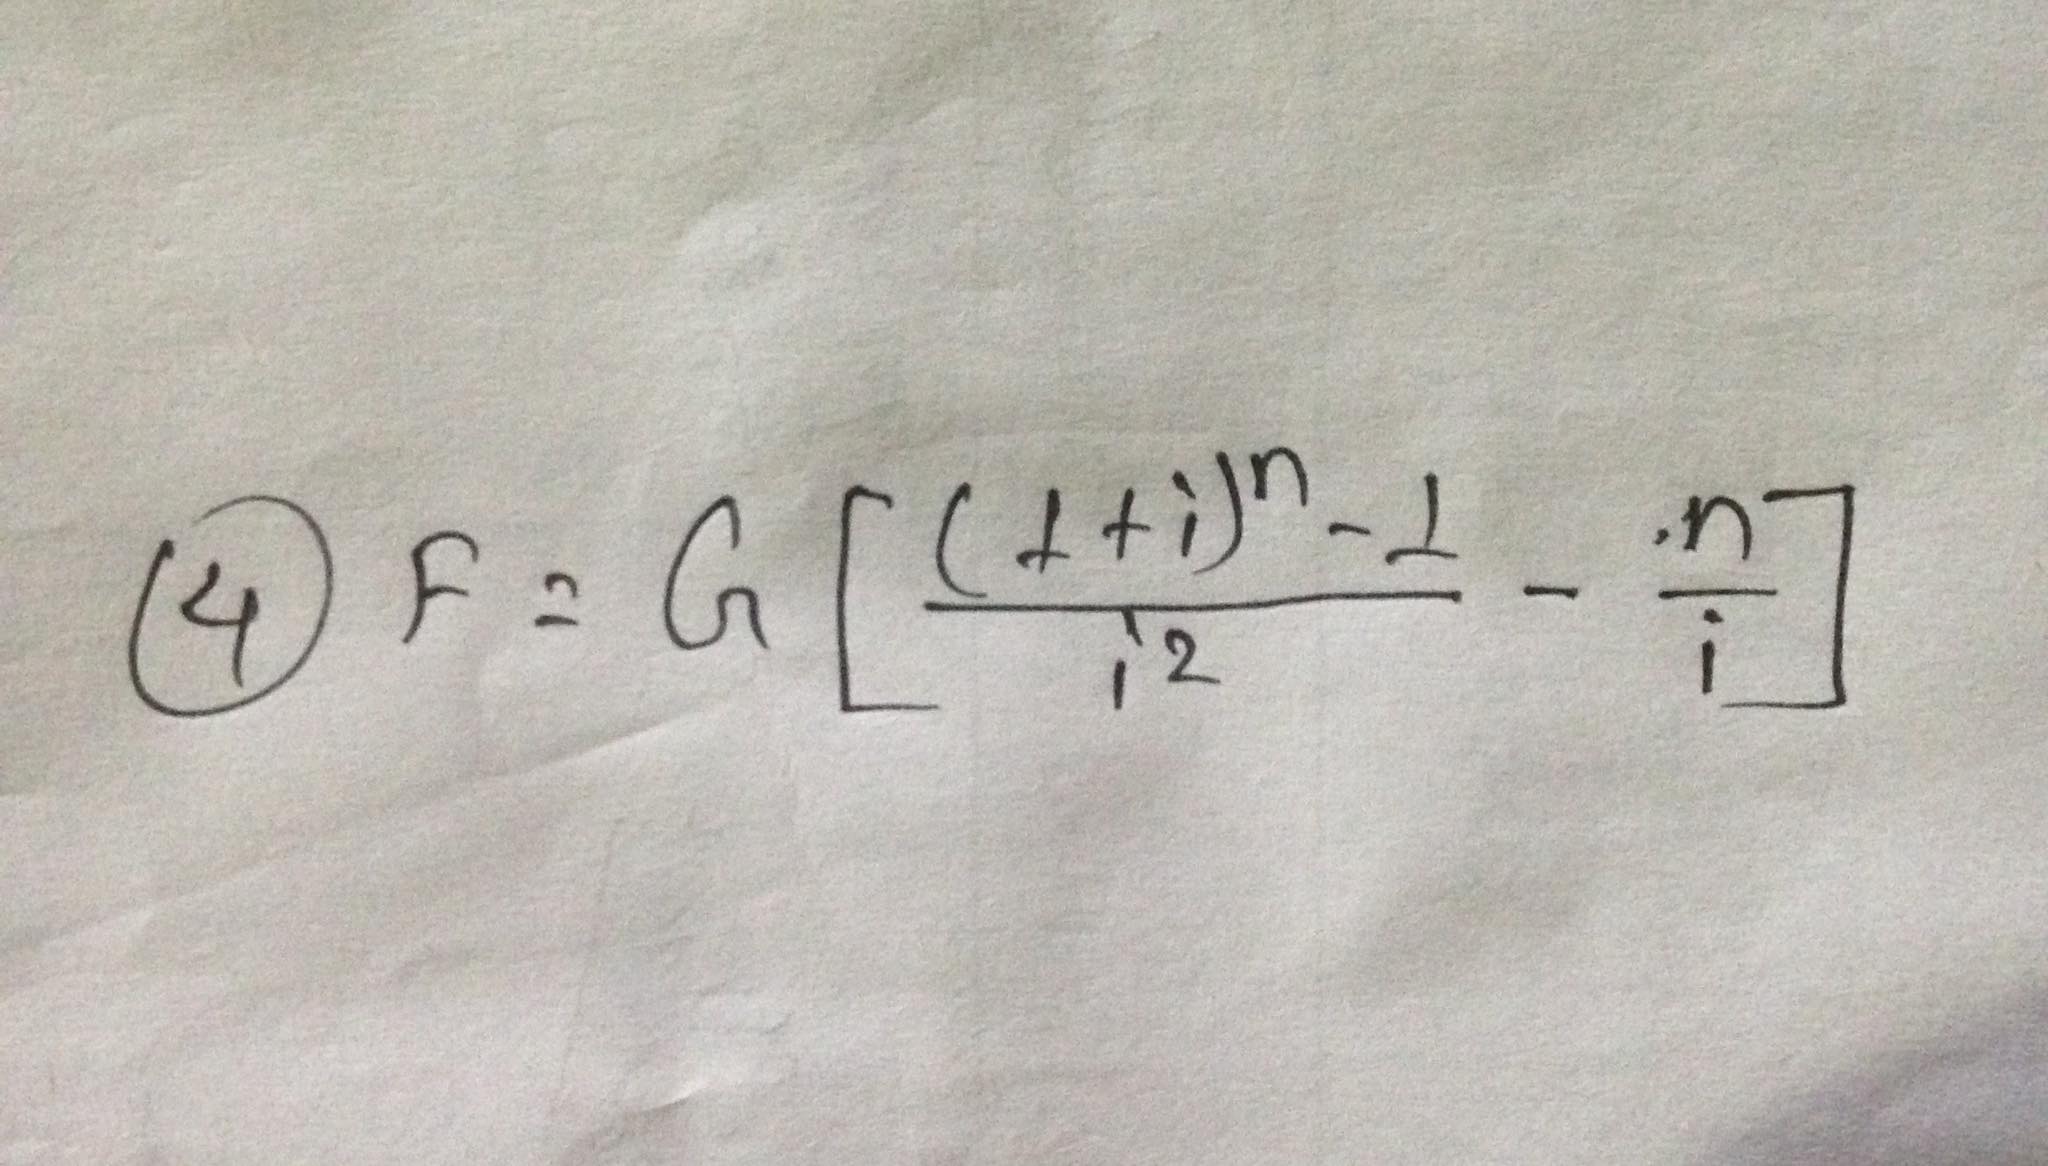 ④ F = G [ ((1+i)^n - 1) / i^2 - n / i ]